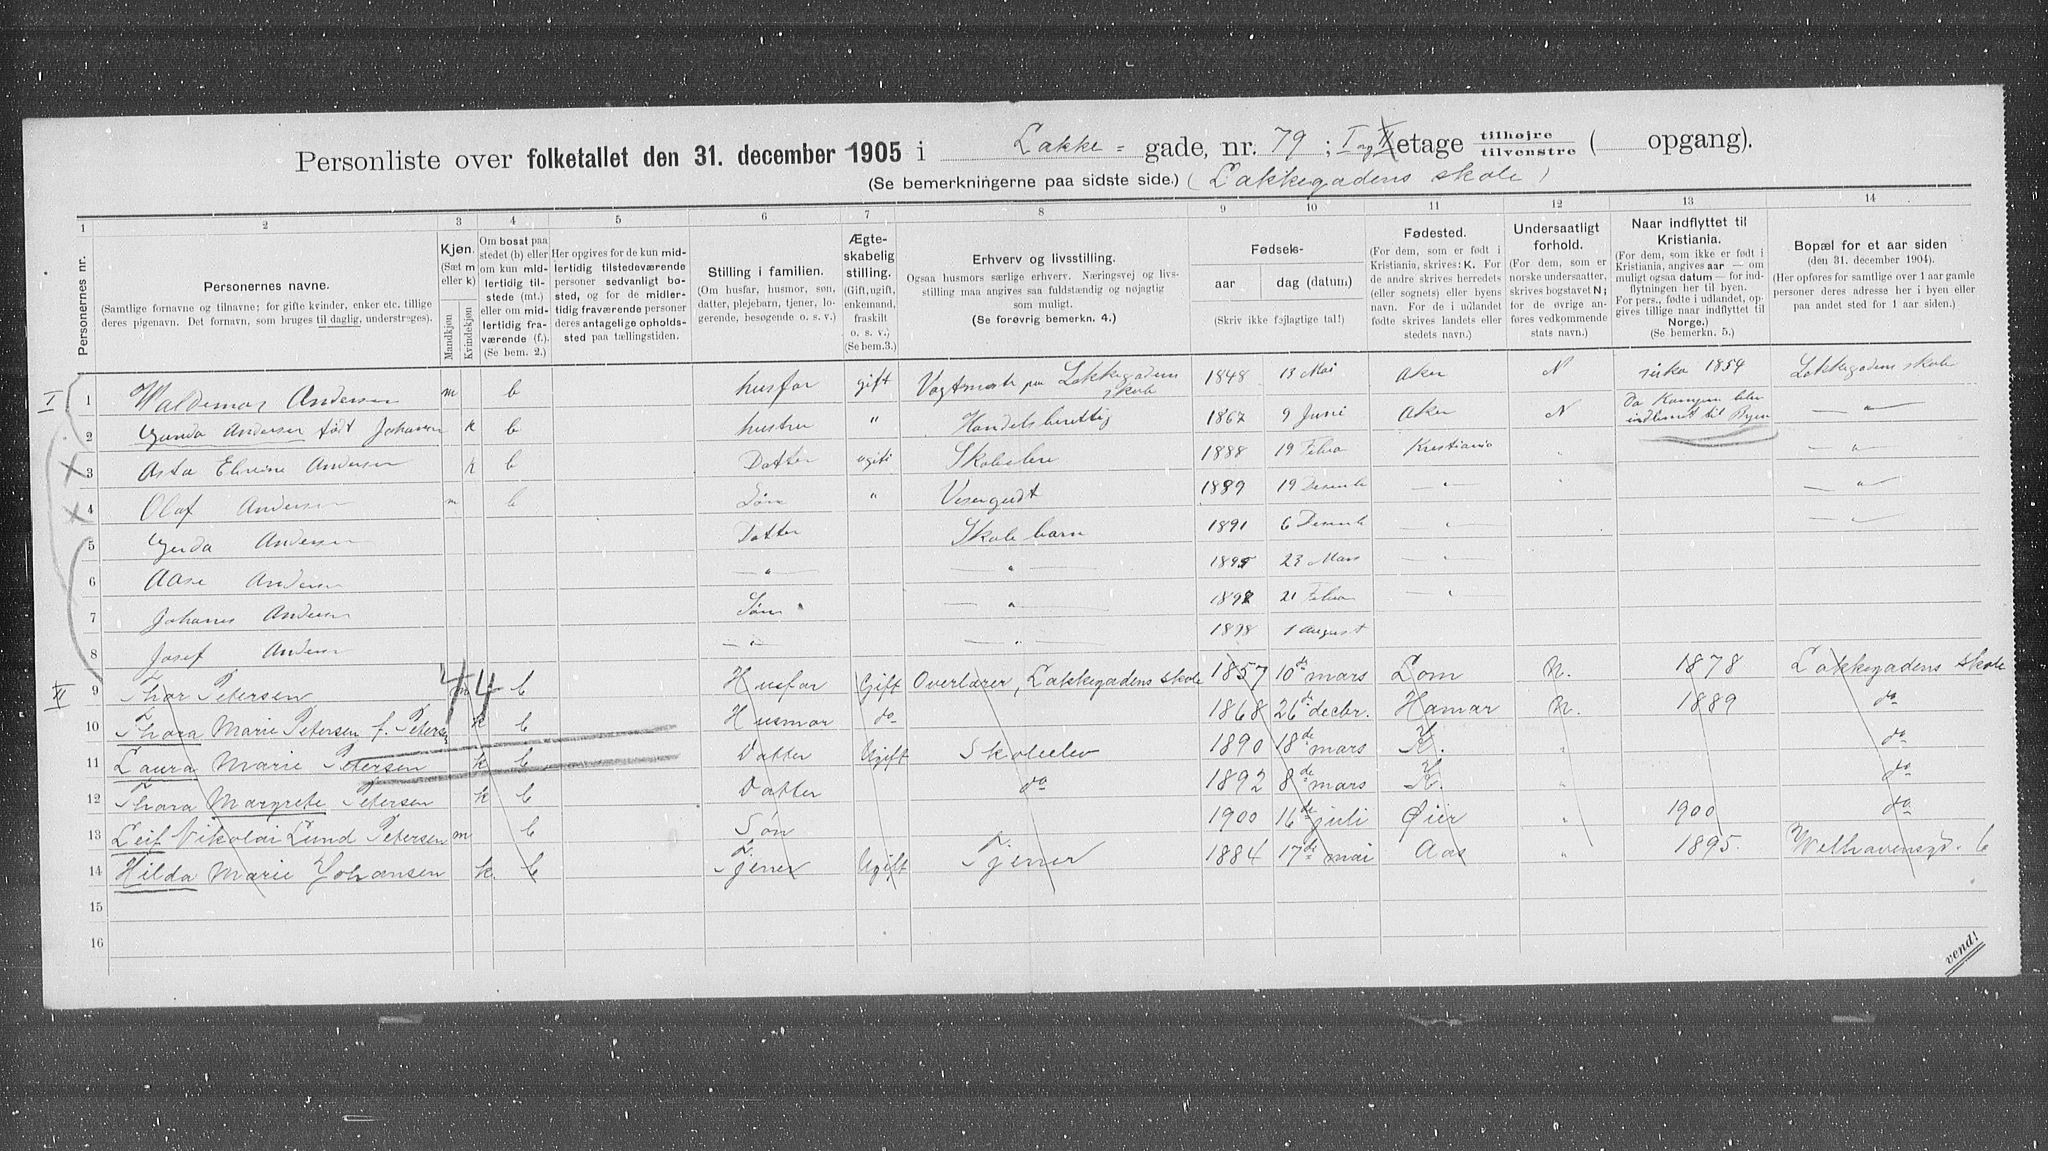 Personliste over folketallet den 31. december 1905 i Lakke- gade, nr. 79 ; I og II etage tilhøjre tilvenstre ( opgang).
(Se bemerkningerne paa sidste side.) (Lakkegadens skole)
1 2 3 4 5 6 7 8 9 10 11 12 13 14
Personernes nr.
Personernes navne.
(Samtlige fornavne og tilnavne; for gifte kvinder, enker etc. tillige
deres pigenavn. Det fornavn, som bruges til daglig, understreges).
Kjøn.
(Sæt m
eller k)
Mandkjøn
Kvindekjøn
Om bosat paa
stedet (b) eller
om kun mid-
lertidig til-
stede (mt.)
eller om mid-
lertidig fra-
værende (f.).
(Se bem. 2.)
Her opgives for de kun mid-
lertidig tilstedeværende
personer sedvanlig bo-
sted, og for de midler-
tidig fraværende personer
deres antagelige opholds-
sted paa tællingstiden.
Stilling i familien.
(Om husfar, husmor, søn,
datter, plejebarn, tjener, lo-
gerende, besøgende o. s. v.)
Ægte-
skabelig
stilling.
(Gift, ugift,
enkemand,
fraskilt
o. s. v.)
(Se bem.3.)
Erhverv og livsstilling.
Ogsaa husmors særlige erhverv. Næringsvej og livs-
stilling maa angives saa fuldstændig og nøjagtig
som muligt.
(Se forøvrig bemerkn. 4.)
Fødsels-
aar
dag (datum)
(Skriv ikke fejlagtige tal!)
Fødested.
(For dem, som er født i
Kristiania, skrives: K. For
de andre skrives herredets
(eller sognets) eller byens
navn. For de i udlandet
fødte skrives landets eller
stedets navn.)
Undersaatligt
forhold.
(For dem, som er
norske undersaatter,
skrives bogstavet N;
for de øvrige an-
føres vedkommende
stats navn.)
Naar indflyttet til
Kristiania.
(For dem, som ikke er født i
Kristiania, angives aar — om
muligt ogsaa datum — for ind-
flytningen her til byen.
For pers., fødte i udlandet, op-
gives tillige naar indflyttet til
Norge.)
(Se bemerkn. 5.)
Bopæl for et aar siden
(den 31. december 1904).
(Her opføres for samtlige over 1 aar gamle
personer deres adresse her i byen eller
paa andet sted for 1 aar siden.)
I
1 Waldemar Andersen m b husfar gift Vagtmester paa Lakkegadens skole 1848 13 Mai Aker N sirka 1854 Lakkegadens skole
2 Gunda Andersen født Johansen k b hustru " Handelsberettig 1867 9 Juni Aker N Da Kampen blev indlemet til Byen — " —
3 Asta Andersen k b Datter ugift 1888 19 Februar Kristiania " — " —
4 Olaf Andersen m b Søn " Visergudt 1889 19 Desemb — " — " — " —
5 Gerda Andersen Datter Skolebarn 1891 6 Desemb — " — — " —
6 Aase Andersen — " — — " — 1895 23 Mars — " —
7 Johanes Andersen Søn — " — 21 Februar — " —
8 Josef Andersen — " — — " — 1898 1 August
II
44
9 Thor Petersen m b Husfar Gift Overlærer, Lakkegadens skole 1857 10de mars Lom N. 1878 Lakkegadens skole
10 Thora Marie Petersen f. Petersen k b Husmor do 1868 26de decbr. Hamar N. 1889 do
11 Laura Marie Petersen k b Datter Ugift Skoleelev 1890 18de mars K. " do
12 Thora Margrete Petersen k b Datter do 1892 8de mars K. " do
13 Leif Nikolai Lund Petersen m b Søn 1900 16de juli Øier " 1900 do
14 Hilda Marie Johansen k. b Tjener Ugift Tjener 1884 17de mai Aas " 1895. Welhavensgd. 6
15
16
vend!